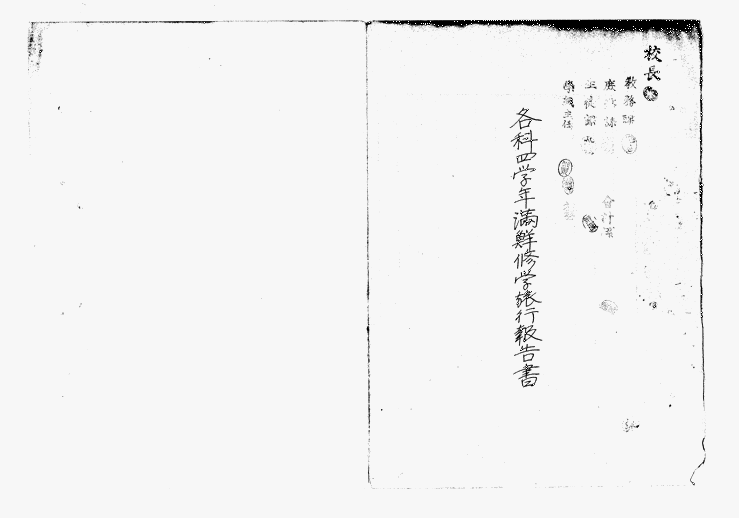 校長
教務課
庶務課 會計系
生徒課
學級主任
各科四学年満鮮修学旅行報告書